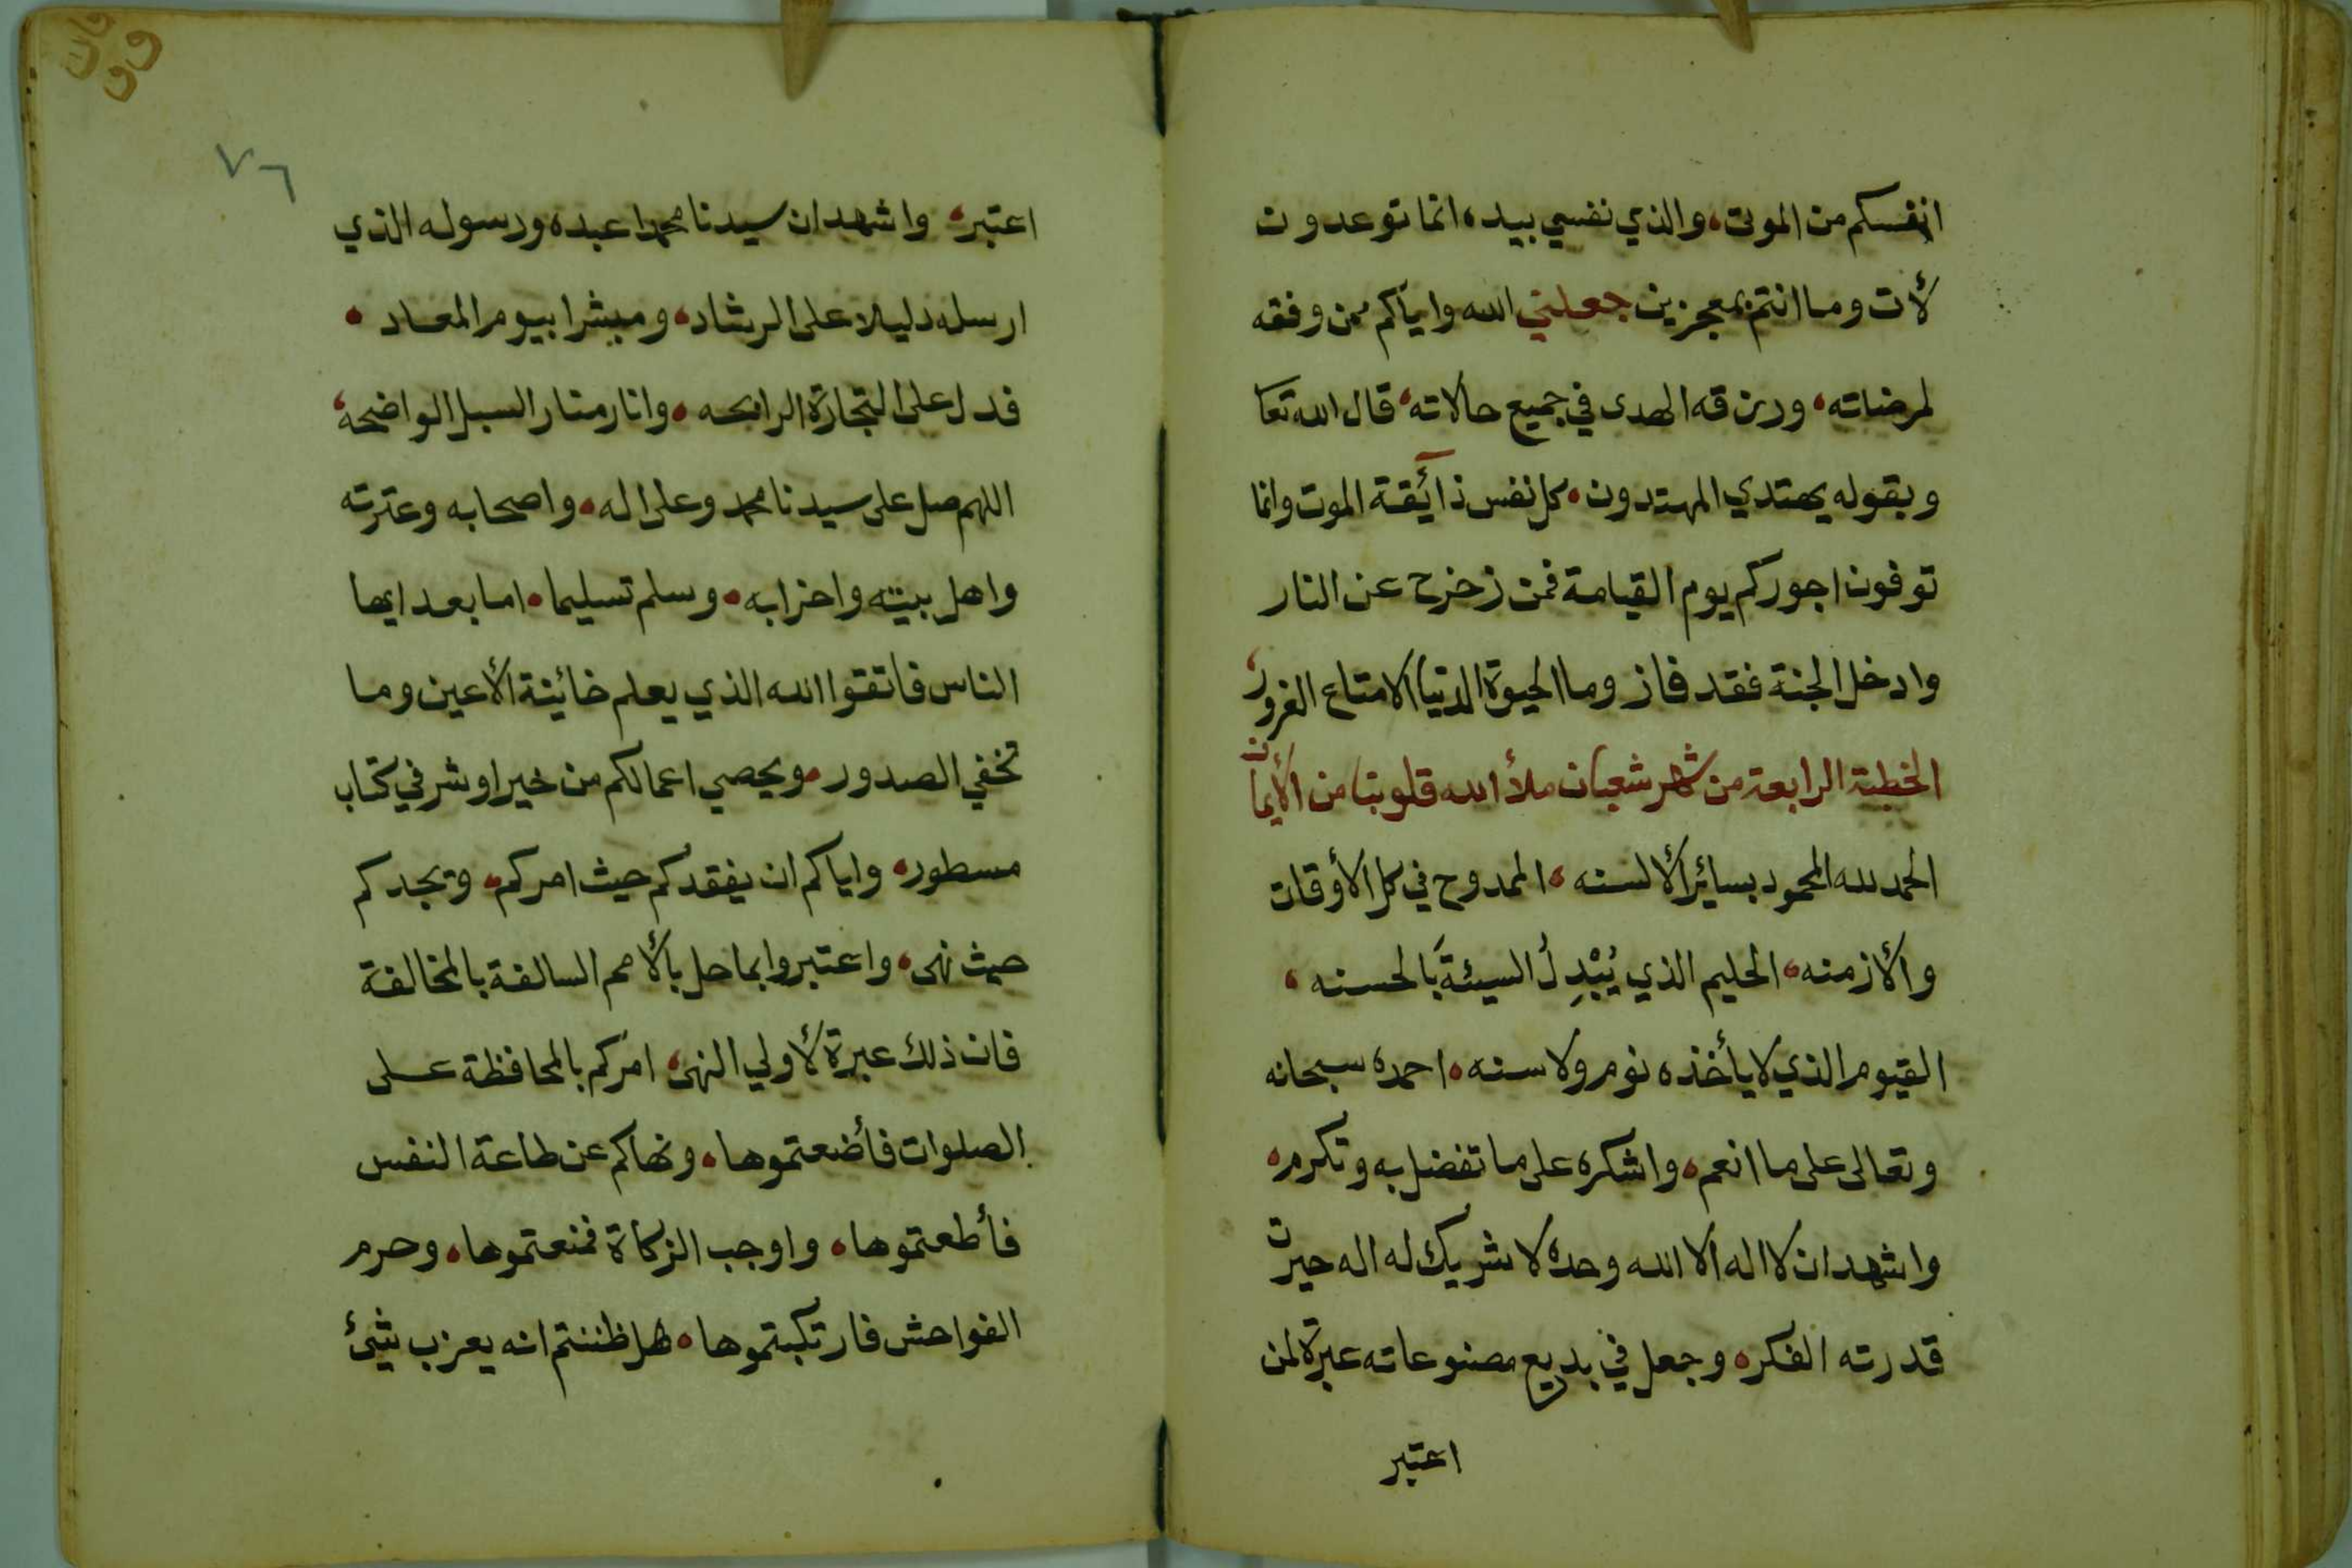 انفسكم من الموت، والذي نفسي بيده، انما توعدون
لأت وما انتم بمعجزين جعلني الله واياكم ممن وفقه
لمرضاته، ورزقه الهدى في جميع حالاته، قال الله تعا
وبقوله يهتدي المهتدون، كل نفس ذآئقة الموت وانما
توفون اجوركم يوم القيامة فمن زحزح عن النار
وادخل الجنة فقد فاز وما الحيوة الدنيا الا متاع الغرور،
الخطبة الرابعة من شهر شعبان ملأ الله قلوبنا من الأيمان
الحمد لله المحمود بسائر الألسنه، الممدوح في كل الأوقات
والأزمنه، الحليم الذي يُبْدِلُ السيئةَ بالحسنه،
القيوم الذي لا يأخذه نوم ولا سنه، احمده سبحانه
وتعالى على ما انعم، واشكره على ما تفضل به وتكرم،
واشهد ان لا اله الا الله وحده لا شريك له اله حيرت
قدرته الفكر، وجعل في بديع مصنوعاته عبرة لمن
اعتبر
٧٦
اعتبر، واشهد ان سيدنا محمدا عبده ورسوله الذي
ارسله دليلا على الرشاد، ومبشرا بيوم المعاد،
فدل على التجارة الرابحه، وانار منار السبل الواضحة،
اللهم صل على سيدنا محمد وعلى اله، واصحابه وعترته
واهل بيته واحزابه، وسلم تسليما، اما بعد ايها
الناس فاتقوا الله الذي يعلم خائينة الأعين وما
تخفي الصدور، ويحصي اعمالكم من خير او شر في كتاب
مسطور، واياكم ان يفقدكم حيث امركم، ويجدكم
حيث نهى، واعتبروا بما حل بالأمم السالفة بالمخالفة
فان ذلك عبرة لأولي النهى، امركم بالمحافظة على
الصلوات فأضعتموها، ونهاكم عن طاعة النفس
فأطعتموها، واوجب الزكاة فمنعتموها، وحرم
الفواحش فارتكبتموها، هل ظننتم انه يعزب شئ